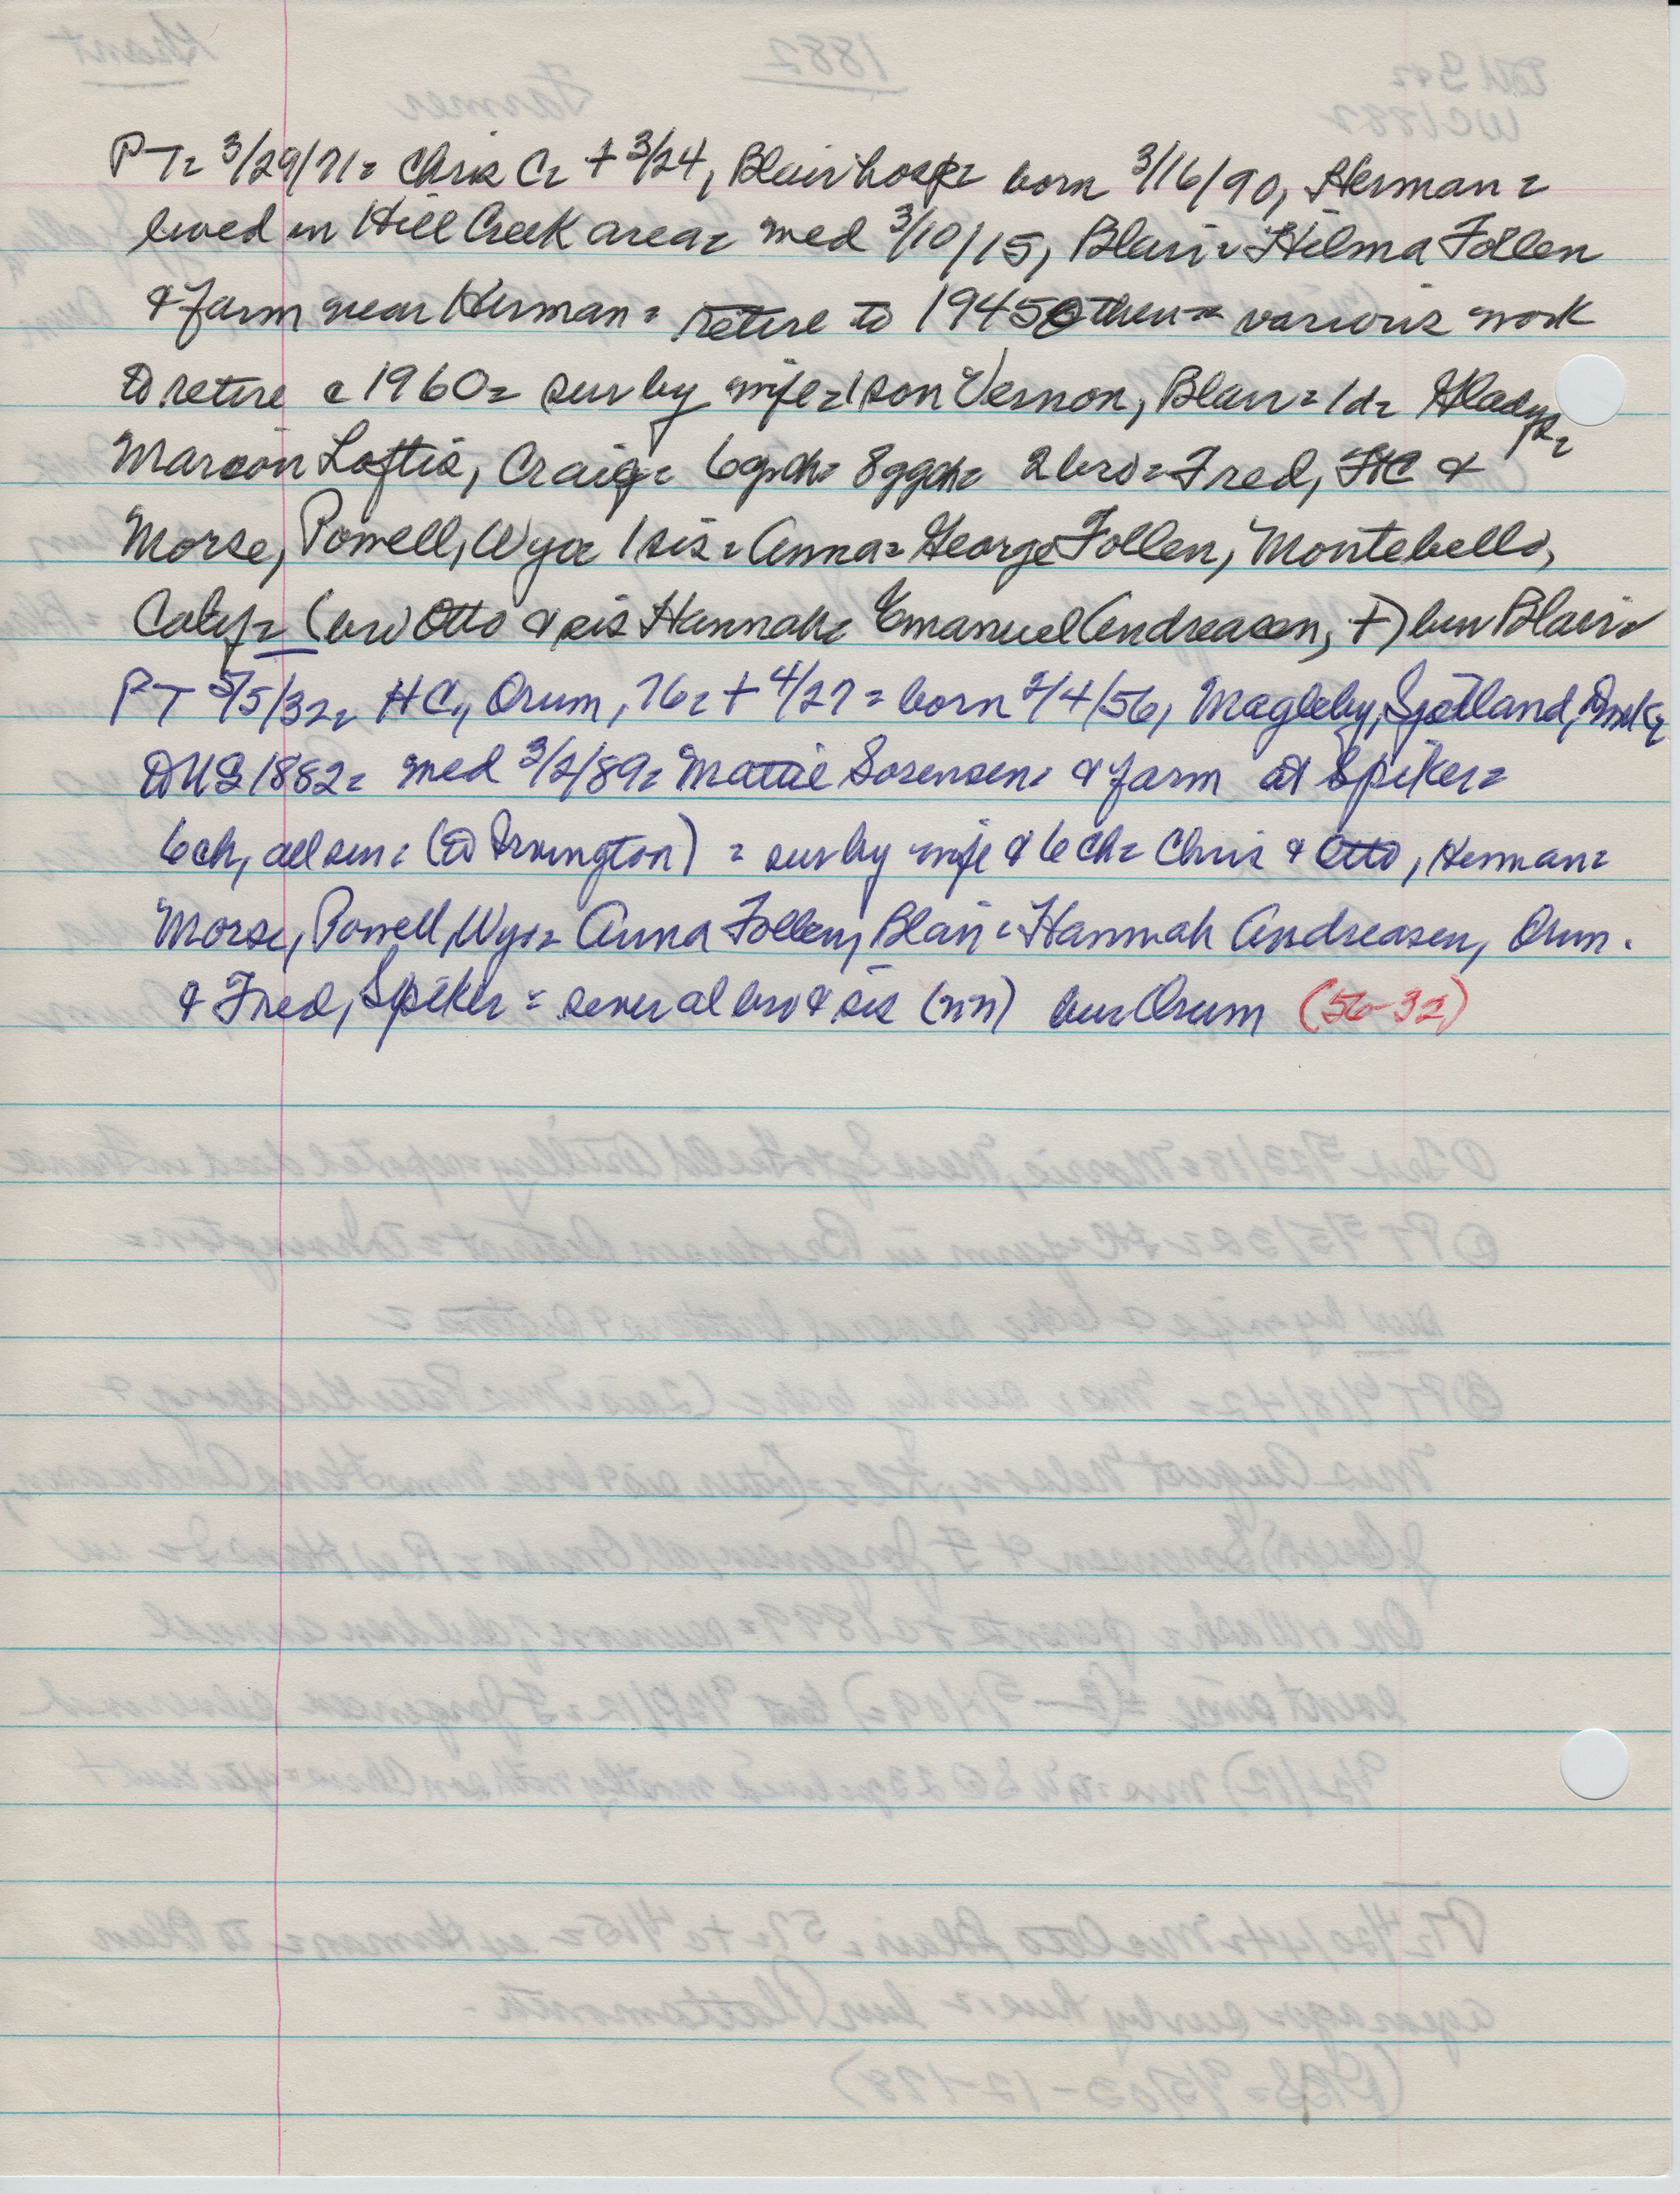 PT= 3/29/71= Chris C= + 3/24, Blair hosp= born 3/16/90, Herman=
lived in Hill Creek area= med 3/10/15, Blair= Hilma Follen
& farm near Herman= retire to 1945 then= various work
to retire c 1960= sur by wife= 1 son Vernon, Blair= 1 d= Gladys=
Marion Loftis, Craig= 6 gch= 8 ggch= 2 bro= Fred, &
Morse, Powell, Wyo= 1 sis= Anna= George Follen, Montebello,
Calif= (bro Otto & sis Hannah= Emanuel Andreasen, +) bur Blair=
PT 5/5/32= HC, Orum, 76= + 4/27= born 2/4/56, Magleby, Sjelland, Dmk=
DUS 1882= med 3/2/89= Mattie Sorensen= & farm at Spiker=
6 ch, all sur= (to Irvington) = sur by wife & 6 ch= Chris & Otto, Herman=
Morse, Powell, Wyo= Anna Follen, Blair= Hannah Andreasen, Orum.
& Fred, Spiker= several bro & sis (nn) bur Orum (56-32)